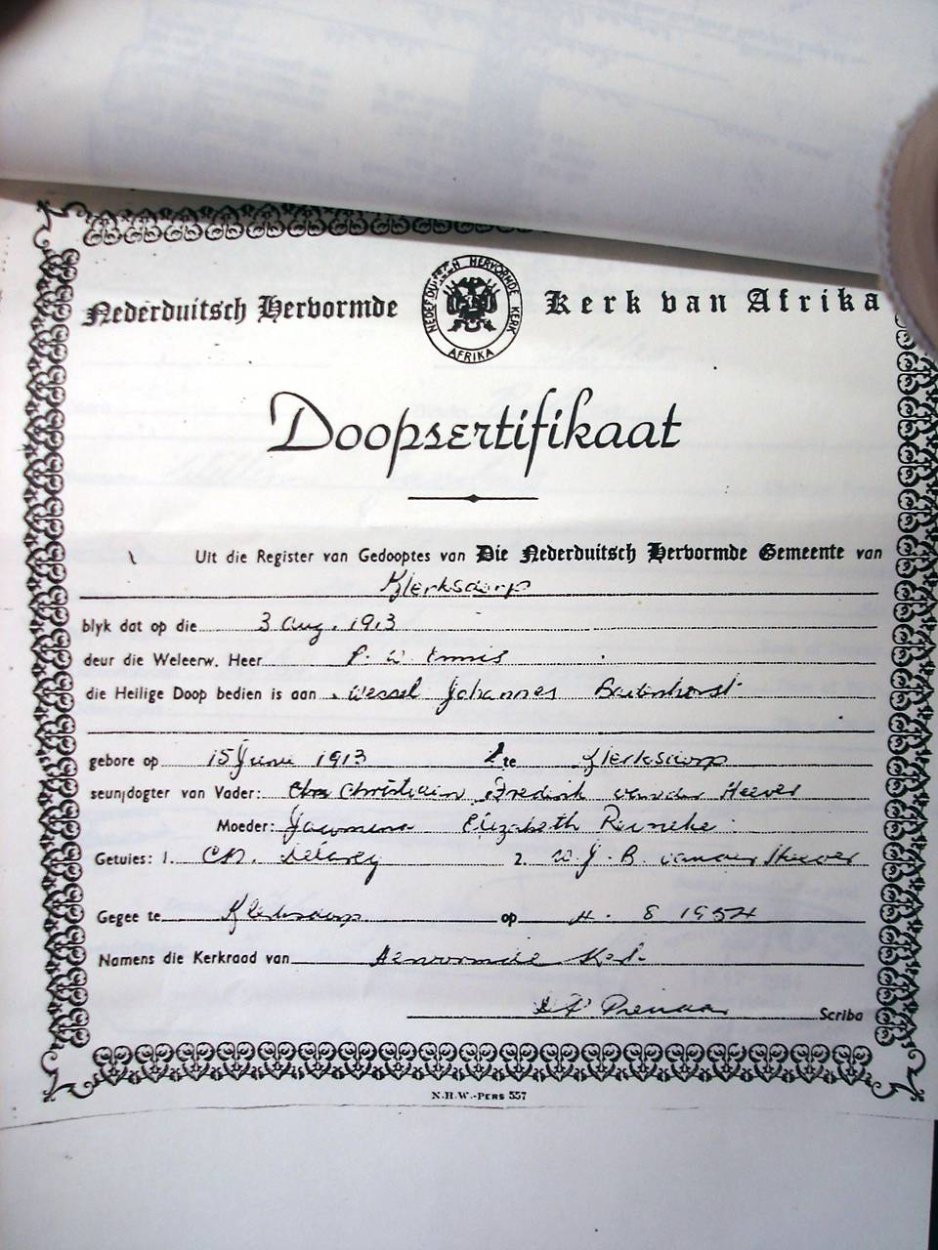 Nederduitsch Hervormde Kerk van Afrika
NEDERDUITSCH HERVORMDE KERK
AFRIKA
Doopsertifikaat
Uit die Register van Gedooptes van Die Nederduitsch Hervormde Gemeente van
Klerksdorp
blyk dat op die 3 Aug. 1913
deur die Weleerw. Heer P. W.
die Heilige Doop bedien is aan Wessel Johannes
gebore op 15 Junie 1913 te Klerksdorp
seun/dogter van Vader: Christiain Fredrik van der Heever
Moeder: Jacomina Elizabeth Reineke
Getuies: 1. Delarey 2. W. J. B. van der Heever
Gegee te Klerksdorp op 4. 8 1954
Namens die Kerkraad van Hervormde
Scriba
N.H.W.-PERS 557